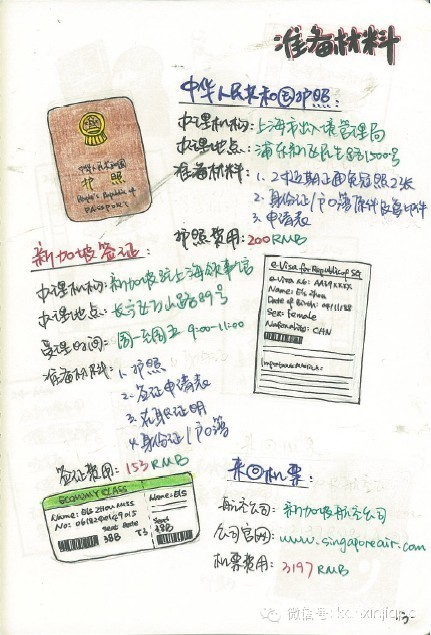 准备材料
中华人民共和国护照:
办理机构:上海市出入境管理局
办理地点:浦东新区民生路1500号
准备材料:1.2寸近期正面免冠照2张
2.身份证/户口簿原件及复印件
3.申请表
护照费用:200RMB
中华人民共和国
护照
People's Republic of
PASSPORT
新加坡签证:
办理机构:新加坡驻上海领事馆
办理地点:长宁区万山路89号
受理时间:周一至周五 9:00-11:00
准备材料:1.护照
2.签证申请表
3.在职证明
4.身份证/户口簿
签证费用:153RMB
e-Visa for Republic of SG
e-Visa No: AA39XXXX
Name: Els Zhou
Date of Birth: 08/11/88
Sex: female
Nationality: CHN
Important Notice:
ECONOMY CLASS
Name: Els Zhou Miss
Seat Gate
38B T3
Name: Els
Seat
38B
来回机票:
航空公司:新加坡航空公司
公司官网:www.singaporeair.com
机票费用:3197RMB
微信号: